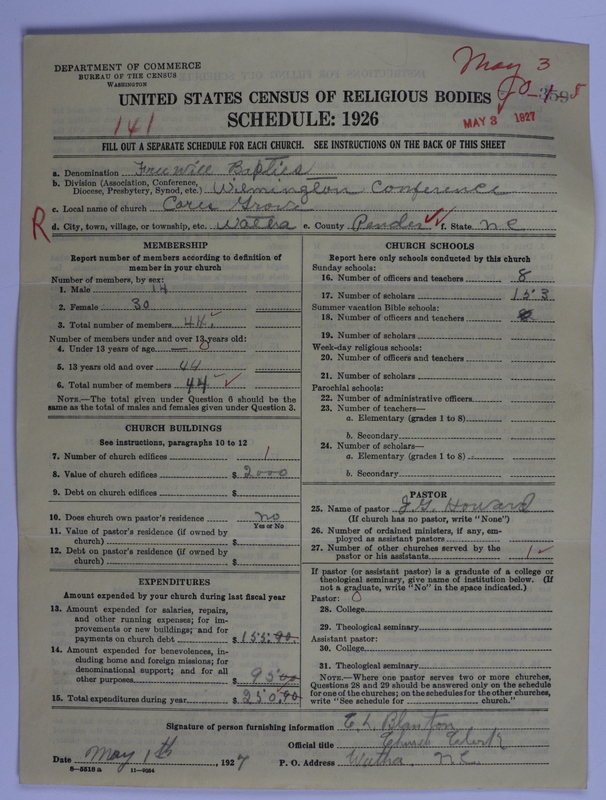 DEPARTMENT OF COMMERCE
BUREAU OF THE CENSUS
WASHINGTON
May 3
UNITED STATES CENSUS OF RELIGIOUS BODIES
SCHEDULE: 1926
MAY 3 1927
141
FILL OUT A SEPARATE SCHEDULE FOR EACH CHURCH. SEE INSTRUCTIONS ON THE BACK OF THIS SHEET
a. Denomination Freewill Baptist
b. Division (Association, Conference, Diocese, Presbytery, Synod, etc.) Wilmington Conference
c. Local name of church Grove
R
d. City, town, village, or township, etc. Watha e. County Pender f. State NC
MEMBERSHIP
Report number of members according to definition of
member in your church
Number of members, by sex:
1. Male 14
2. Female 30
3. Total number of members 44
Number of members under and over 13 years old:
4. Under 13 years of age — 0
5. 13 years old and over 44
6. Total number of members 44
NOTE.—The total given under Question 6 should be the
same as the total of males and females given under Question 3.
CHURCH BUILDINGS
See instructions, paragraphs 10 to 12
7. Number of church edifices 1
8. Value of church edifices $ 2000
9. Debt on church edifices $
10. Does church own pastor's residence no
Yes or No
11. Value of pastor's residence (if owned by
church) $
12. Debt on pastor's residence (if owned by
church) $
EXPENDITURES
Amount expended by your church during last fiscal year
13. Amount expended for salaries, repairs,
and other running expenses; for im-
provements or new buildings; and for
payments on church debt $ 155.00
14. Amount expended for benevolences, in-
cluding home and foreign missions; for
denominational support; and for all
other purposes $ 95 00
15. Total expenditures during year $ 250.00
CHURCH SCHOOLS
Report here only schools conducted by this church
Sunday schools:
16. Number of officers and teachers 8
17. Number of scholars 153
Summer vacation Bible schools:
18. Number of officers and teachers
19. Number of scholars
Week-day religious schools:
20. Number of officers and teachers
21. Number of scholars
Parochial schools:
22. Number of administrative officers
23. Number of teachers—
a. Elementary (grades 1 to 8)
b. Secondary
24. Number of scholars—
a. Elementary (grades 1 to 8)
b. Secondary
PASTOR
25. Name of pastor J. G. Howard
(If church has no pastor, write "None")
26. Number of ordained ministers, if any, em-
ployed as assistant pastors
27. Number of other churches served by the
pastor or his assistants 1
If pastor (or assistant pastor) is a graduate of a college or
theological seminary, give name of institution below. (If
not a graduate, write "No" in the space indicated.)
Pastor: 0
28. College
29. Theological seminary
Assistant pastor:
30. College
31. Theological seminary
NOTE.—Where one pastor serves two or more churches,
Questions 28 and 29 should be answered only on the schedule
for one of the churches; on the schedules for the other churches,
write "See schedule for church."
Signature of person furnishing information Blanton
Official title Church Clerk
Date May 1th, 1927 P. O. Address Watha, NC
8—5518a 11—9034